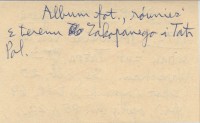 Album fot., również
z terenu Zakopanego i Tatr
Pol.